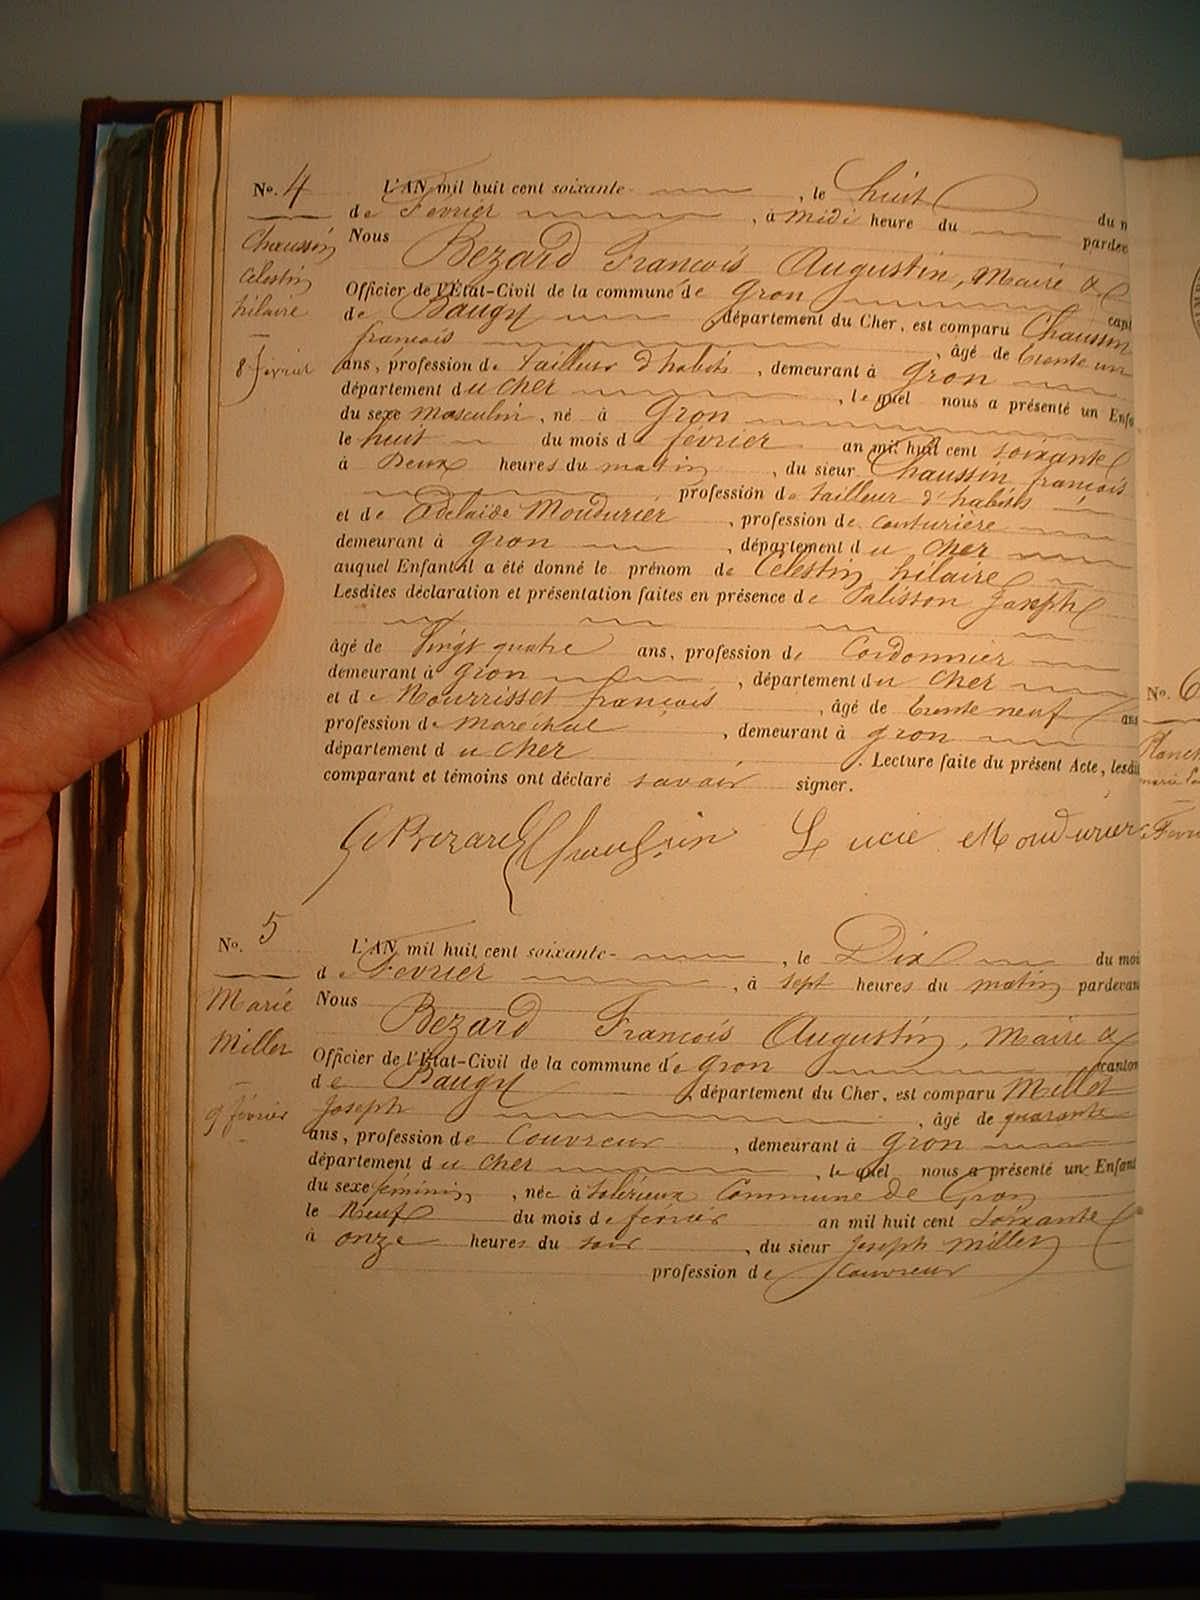 No. 4
Chaussin
Celestin
hilaire
8 février
L'AN mil huit cent soixante , le huit du m
de Février , à midi heure du pardev
Nous Bezard François Augustin, Maire &
Officier de l'État-Civil de la commune de Gron cant
de Baugy , département du Cher, est comparu Chaussin
françois , âgé de trente un
ans, profession de tailleur d'habits , demeurant à Gron
département du cher , lequel nous a présenté un Enfa
du sexe masculin , né à Gron
le huit du mois de février an mil huit cent soixante
à Deux heures du matin , du sieur Chaussin françois
profession de tailleur d'habits
et de Adelaide Moudurier , profession de couturière
demeurant à gron , département du cher
auquel Enfant il a été donné le prénom de Celestin hilaire
Lesdites déclaration et présentation faites en présence de Palisson Joseph
âgé de Vingt quatre ans, profession de Cordonnier
demeurant à gron , département du cher
et de Nourrisset françois , âgé de trente neuf ans
profession de marechal , demeurant à gron
département du cher . Lecture faite du présent Acte, lesdit
comparant et témoins ont déclaré savoir signer.
Bezard Chaussin Lucie Moudurier
No. 5
Marie
Millet
9 février
L'AN mil huit cent soixante- , le Dix du moi
de Février , à sept heures du matin pardevan
Nous Bezard François Augustin, Maire &
Officier de l'État-Civil de la commune de gron canton
de Baugy , département du Cher, est comparu Millet
Joseph , âgé de quarante
ans, profession de Couvreur , demeurant à gron
département du cher , lequel nous a présenté un Enfant
du sexe féminin , née à Commune de Gron
le Neuf du mois de février an mil huit cent soixante
à onze heures du soir , du sieur Joseph Millet
profession de Couvreur
No. 6